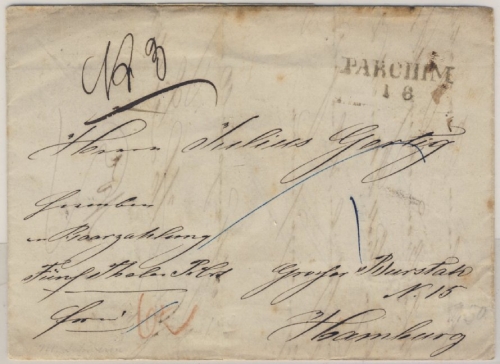 No 3
PARCHIM
1 8
Herrn Julius Gertig
hierneben
Baarzahlung
Fünf Thaler
Großer Burstah
N. 15
Hamburg